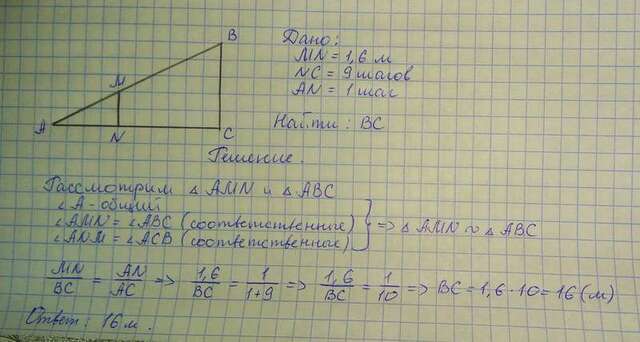 B
M
A
N
C
Дано:
MN = 1,6 м
NC = 9 шагов
AN = 1 шаг
Найти: BC
Решение.
Рассмотрим △ AMN и △ ABC
∠A - общий
∠AMN = ∠ABC (соответственные)
∠ANM = ∠ACB (соответственные)
} => △ AMN ~ △ ABC
MN/BC = AN/AC => 1,6/BC = 1/1+9 => 1,6/BC = 1/10 => BC = 1,6 · 10 = 16 (м)
Ответ: 16 м.